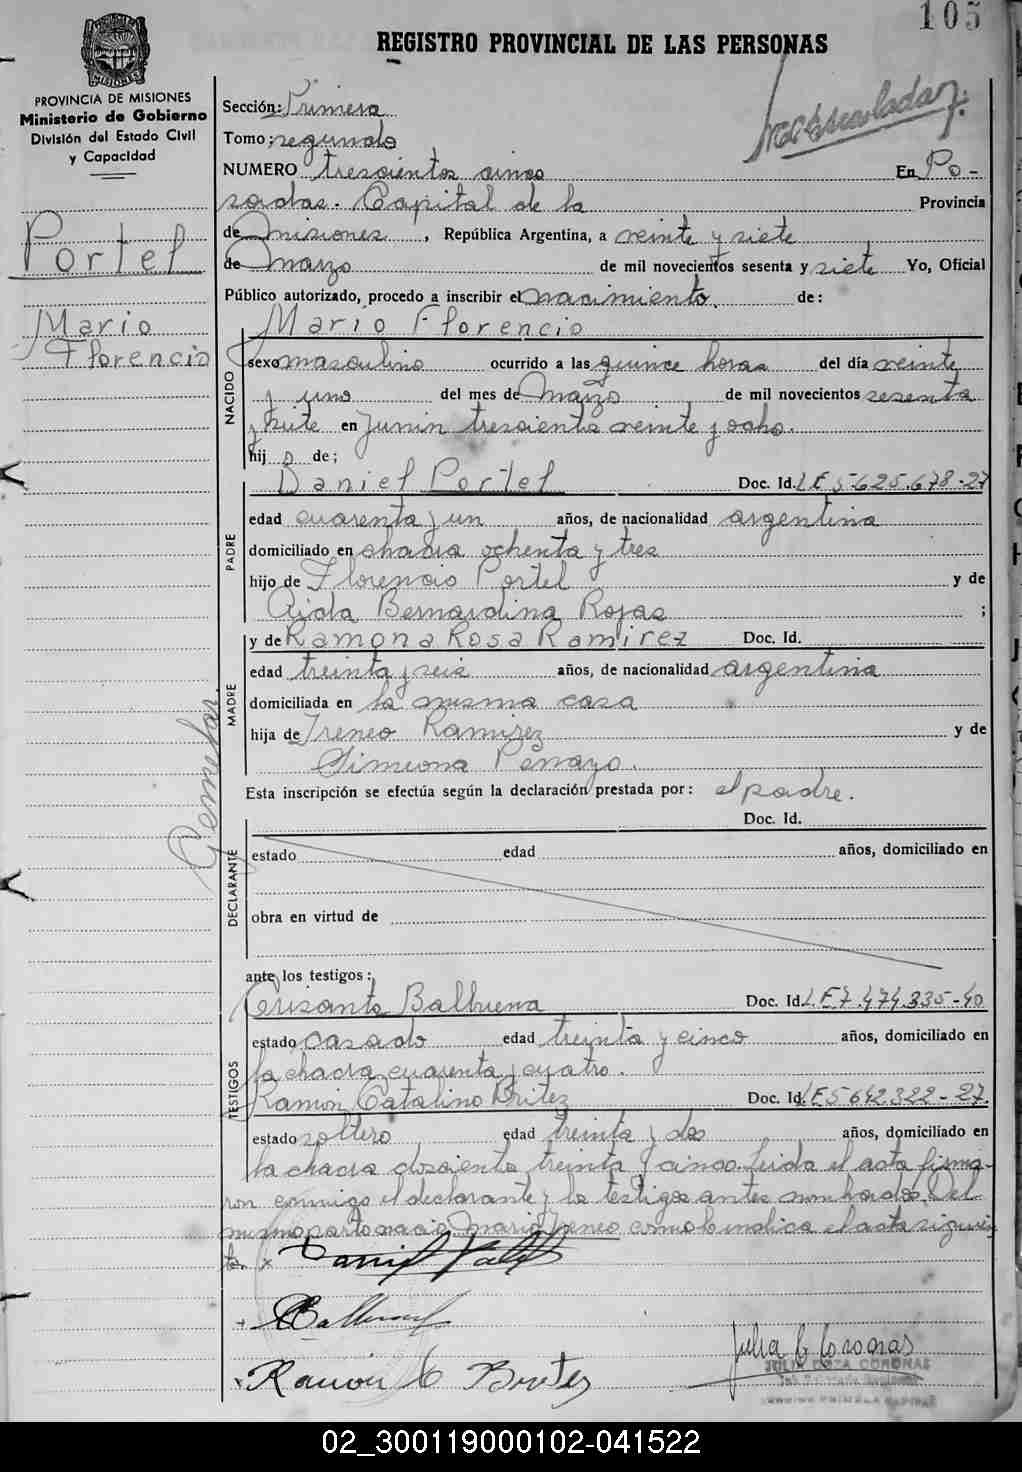 105
REGISTRO PROVINCIAL DE LAS PERSONAS
PROVINCIA DE MISIONES
Ministerio de Gobierno
División del Estado Civil
y Capacidad
Portel
Mario
Florencio
Gemelar.
Sección: Primera
Tomo: segundo
NUMERO trescientos cinco En Po-
sadas. Capital de la Provincia
de Misiones, República Argentina, a veinte y siete
de marzo de mil novecientos sesenta y siete Yo, Oficial
Público autorizado, procedo a inscribir el nacimiento. de:
Mario Florencio
NACIDO
sexo masculino ocurrido a las quince horas del día veinte
y uno del mes de Marzo de mil novecientos sesenta
y siete en Junin trescientos veinte y ocho.
hij o de;
PADRE
Daniel Portel Doc. Id. LE 5-625.678-27
edad cuarenta y un años, de nacionalidad argentina
domiciliado en chacra ochenta y tres
hijo de Florencio Portel y de
Aida Bernardina Rojas ;
MADRE
y de Ramona Rosa Ramirez Doc. Id.
edad treinta y seis años, de nacionalidad argentina
domiciliada en la misma casa
hija de Ireneo Ramirez y de
Simeona Penayo.
Esta inscripción se efectúa según la declaración prestada por: el padre.
DECLARANTE
Doc. Id.
estado edad años, domiciliado en
obra en virtud de
ante los testigos:
TESTIGOS
Crisanto Balbuena Doc. Id. LE 7.474.335-40
estado casado edad treinta y cinco años, domiciliado en
la chacra cuarenta y cuatro.
Ramón Catalino Britez Doc. Id. LE 5642322-27.
estado soltero edad treinta y dos años, domiciliado en
la chacra doscientos treinta y cinco. Leida el acta firma-
ron conmigo el declarante y los testigos antes nombrados. Del
mismo parto nació Mario Ireneo como lo indica el acta siguien
te. x
Balbuena
Ramón C Britez
Julia C Coronas
JULIA COZA CORONAS
02_300119000102-041522